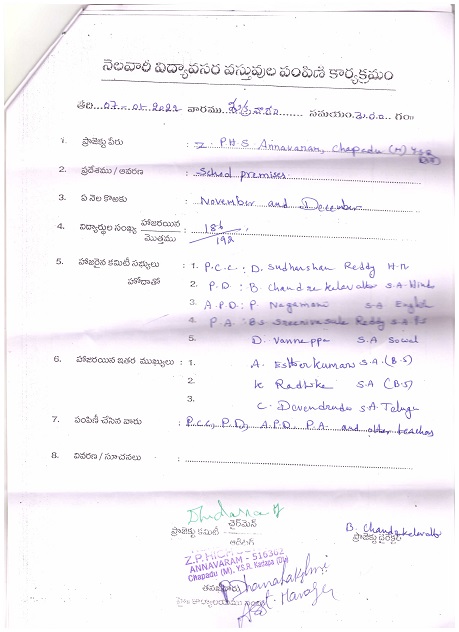 నెలవారీ విద్యావసర వస్తువుల పంపిణీ కార్యక్రమం
తేది...07-01-2022 వారము.శుక్రవారం....... సమయం.3.00.. గం
1. ప్రాజెక్టు పేరు : Z. P.H S Annavaram, Chapadu (M) YSR
2. ప్రదేశము / ఆవరణ : School premises
3. ఏ నెల కొఱకు : November and December
4. విద్యార్థుల సంఖ్య హాజరయిన / మొత్తము : 186 / 192
5. హాజరైన కమిటీ సభ్యులు : 1. P.C.C.: D. Sudharshan Reddy H.M
హోదాతో 2. P.D: B Chandrakalavathi S.A Hindi
3. A.P.D: P. Nagamani S.A English
4. P.A: B.S Sreenivasula Reddy S.A P.S
5. D. Vannappa S.A Social
6. హాజరయిన ఇతర ముఖ్యులు : 1. A. Esther kumari S.A. (B.S)
2. K Radhika S.A (B.S)
3. C. Devendrudu S.A. Telugu
7. పంపిణీ చేసిన వారు : P.C.C, P.D, A.P.D P.A and other teachers
8. వివరణ / సూచనలు :
ప్రాజెక్టు కమిటీ చైర్‌మెన్
B. Chandrakalavathi
ప్రాజెక్టు డైరెక్టర్
Z.P.HIGH
ANNAVARAM - 516362
Chapadu (M), Y.S.R. Kadapa (Dt)
Dhanalakshmi
Asst. Manager